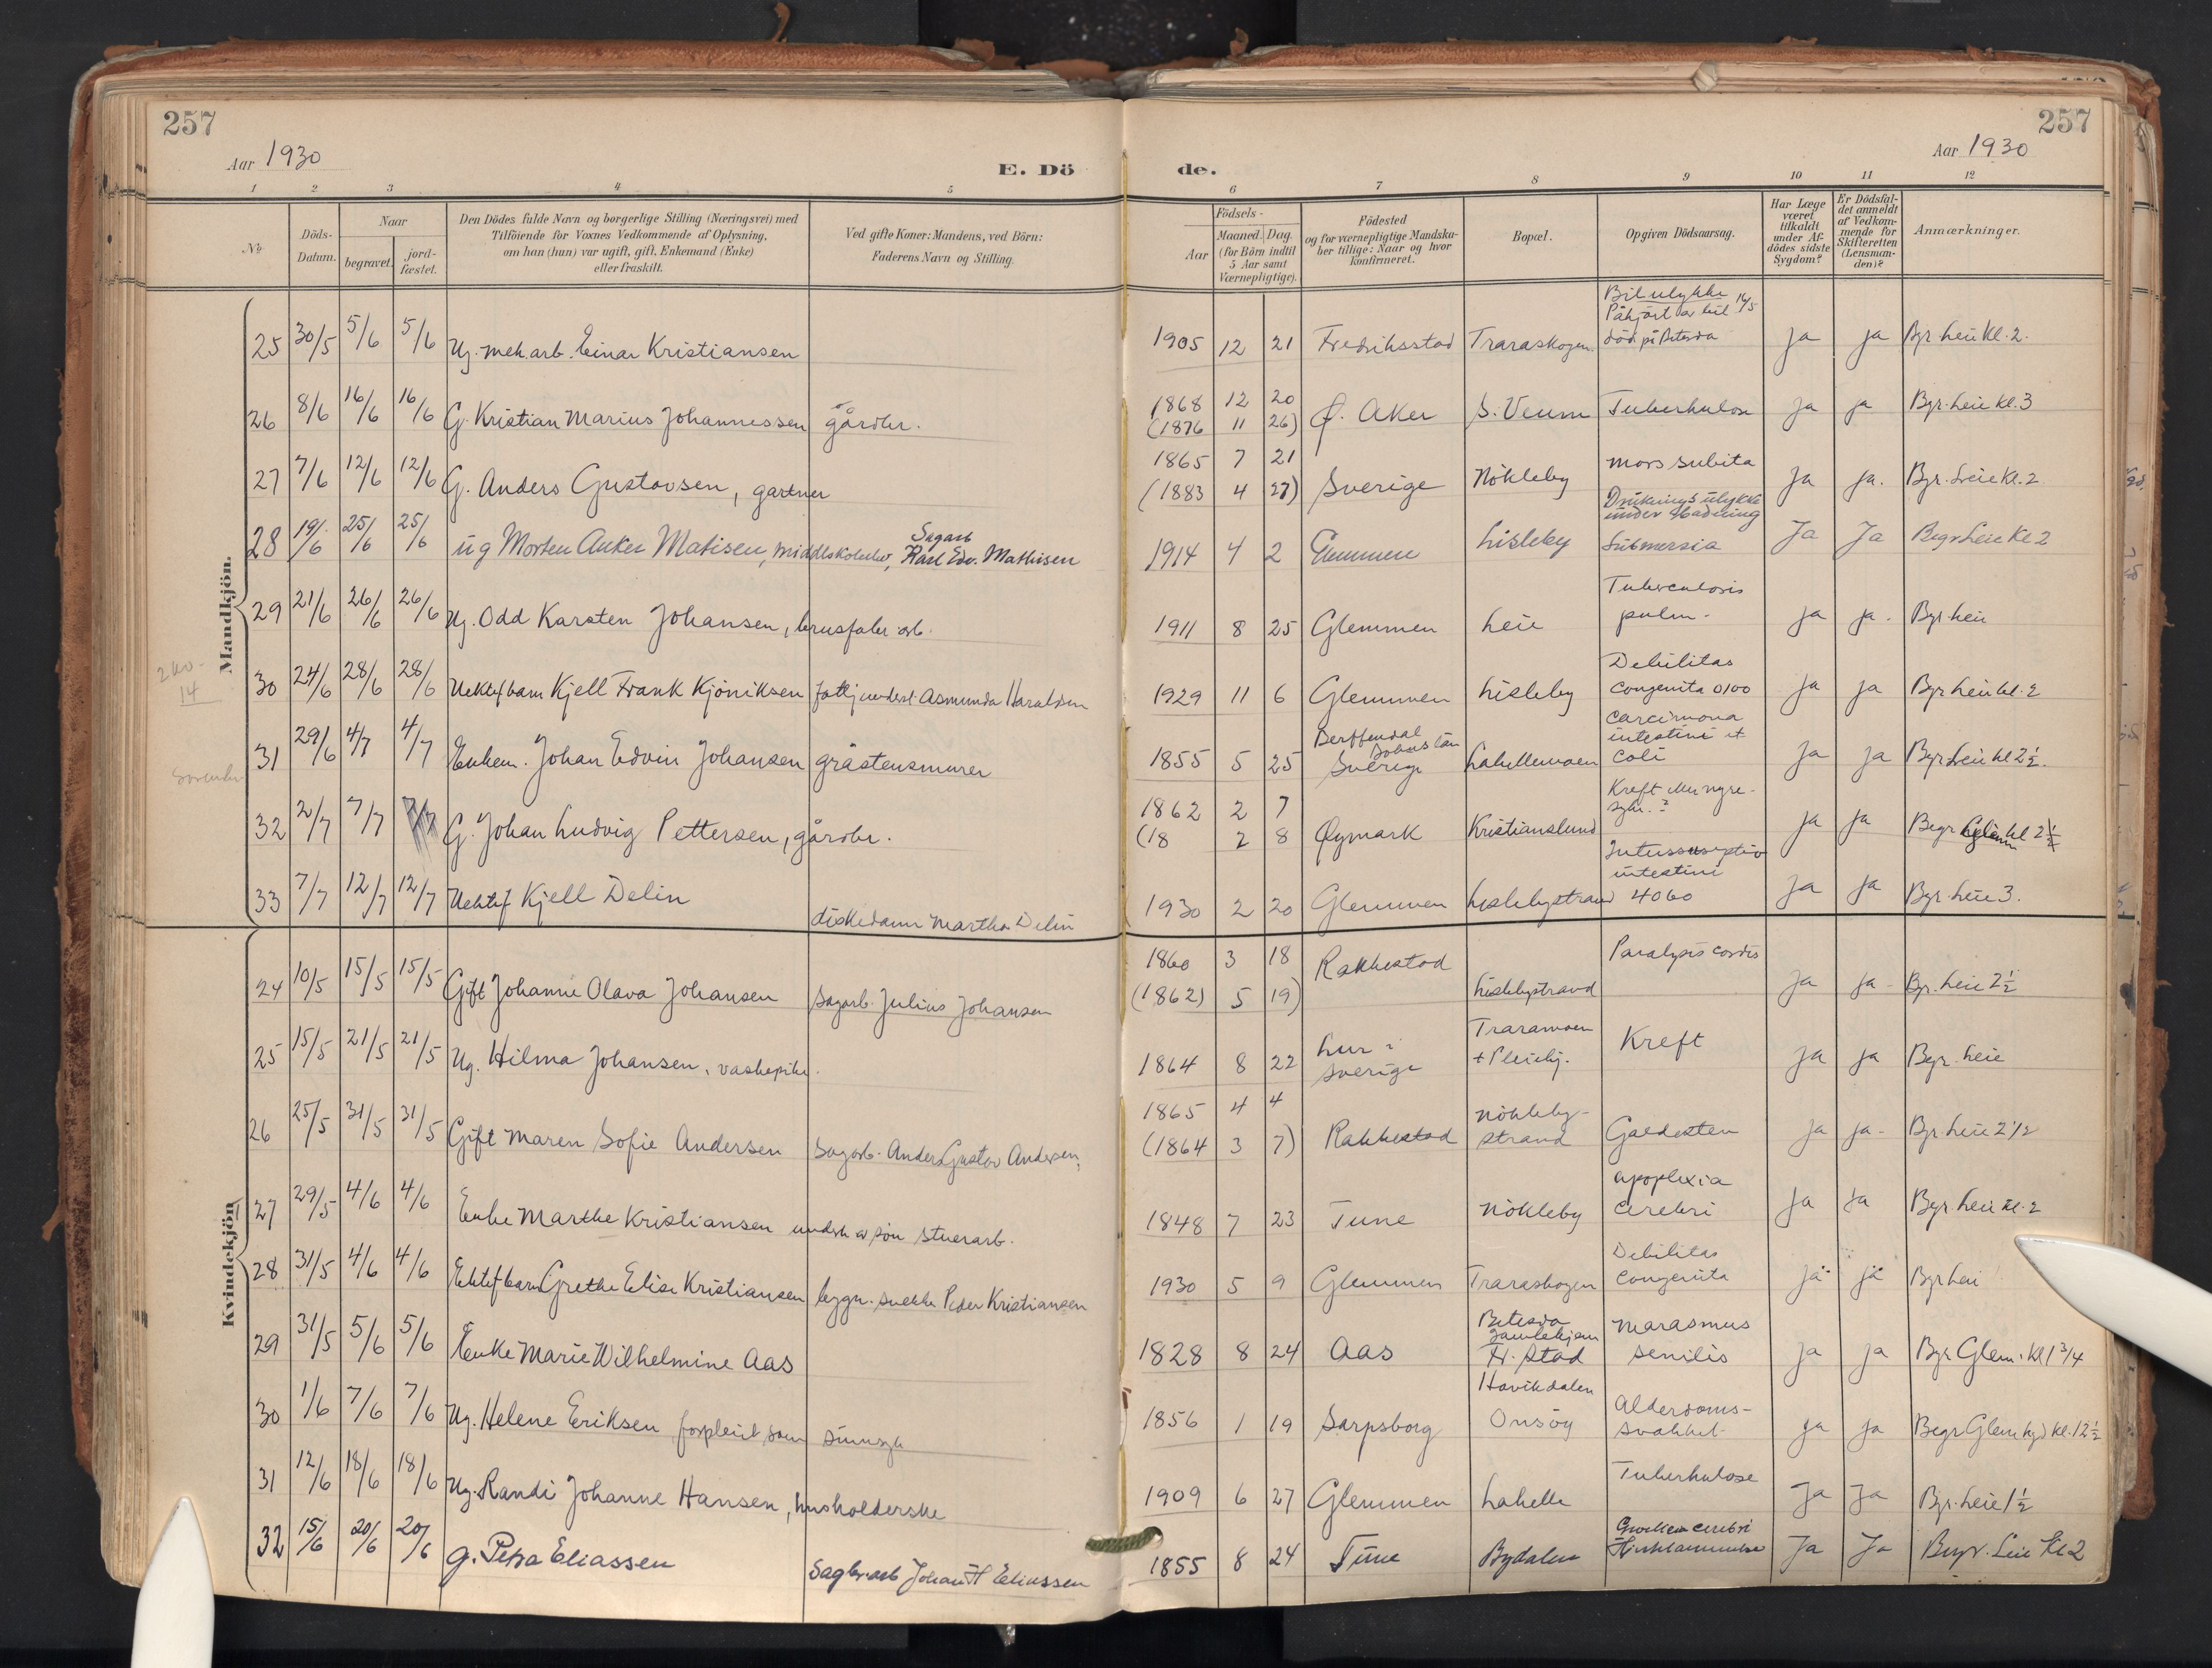 257
Aar 1930
E. Dö
de.
257
Aar 1930
1 2 3 4 5 6 7 8 9 10 11 12
No.
Döds-Datum.
Naar
begravet.
jord-fæstet.
Den Dödes fulde Navn og borgerlige Stilling (Næringsvei) med
Tilföiende for Voxnes Vedkommende af Oplysning,
om han (hun) var ugift, gift, Enkemand (Enke)
eller fraskilt.
Ved gifte Koner: Mandens, ved Börn:
Faderens Navn og Stilling.
Födsels-
Aar
Maaned. Dag.
(for Börn indtil
5 Aar samt
Værnepligtige).
Födested
og for værnepligtige Mandska-
ber tillige: Naar og hvor
konfirmeret.
Bopæl.
Opgiven Dödsaarsag.
Har Læge
været
tilkaldt
under Af-
dödes sidste
Sygdom?
Er Dödsfal-
det anmeldt
af Vedkom-
mende for
Skifteretten
(Lensman-
den)?
Anmærkninger.
Mandkjön.
25 30/5 5/6 5/6 Ug. mek.arb. Einar Kristiansen 1905 12 21 Fredriksstad Traraskogen Bilulykke Påkjørt av bil 16/5 död på Betesda ja ja Bgr. Leie kl. 2.
26 8/6 16/6 16/6 G. Kristian Marius Johannessen gårdbr. 1868 12 20 (1876 11 26) Ø. Aker S. Veum Tuberkulose ja ja Bgr. Leie kl. 3
27 7/6 12/6 12/6 G. Anders Gustavsen, gartner 1865 7 21 (1883 4 27) Sverige Nökleby mors subita ja ja. Bgr. Leie kl. 2
28 19/6 25/6 25/6 ug Morten Anker Matisen, middelskoleelev, Sagarb Karl Edv. Mathisen 1914 4 2 Glemmen Lisleby Drukningsulykke under badning Submersia Ja Ja Begr Leie Kl 2
29 21/6 26/6 26/6 Ug. Odd Karsten Johansen, brusfabr. arb. 1911 8 25 Glemmen Leie Tuberculosis pulm. ja ja. Bgr. Leie
30 24/6 28/6 28/6 Uektef barn Kjell Frank Kjöniksen Asmunda Haraldsen 1929 11 6 Glemmen Lisleby Debilitas congenita 0100 ja ja Bgr. Leie kl. 2
31 29/6 4/7 4/7 Enkem. Johan Edvin Johansen gråstensmurer 1855 5 25 Sverige Lahellemoen Carcinoma intestini et coli ja ja Bgr Leie kl 2½.
32 2/7 7/7 7/7 G. Johan Ludvig Pettersen, gårdbr. 1862 2 7 (18 2 8 Øymark Kristianslund Kreft ja ja Begr Glem kl 2½
33 7/7 12/7 12/7 Uektef Kjell Delin diskedame Martha Delin 1930 2 20 Glemmen Lislebystrand Intussusceptio intestini 4060 ja ja Bgr. Leie 3.
Kvindekjön
24 10/5 15/5 15/5 Gift Johanne Olava Johansen Sagarb. Julius Johansen 1860 3 18 (1862) 5 19) Rakkestad Lislebystrand Paralysis cordis ja ja Bgr. Leie 2½
25 15/5 21/5 21/5 Ug. Hilma Johansen, vaskepike. 1864 8 22 Lur i Sverige Traramoen + Pleiehj. Kreft ja ja Bgr. Leie
26 25/5 31/5 31/5 Gift Maren Sofie Andersen Sagarb. Anders Gustav Andersen 1865 4 4 (1864 3 7) Rakkestad Nökleby-strand Galdesten ja ja Bgr. Leie 2½
27 29/5 4/6 4/6 Enke Marthe Kristiansen stuerarb. 1848 7 23 Tune Nökleby apoplexia cerebri ja ja Bgr. Leie kl. 2
28 31/5 4/6 4/6 Ektef barn Grethe Elise Kristiansen bygn. snekker Peder Kristiansen 1930 5 9 Glemmen Traraskogen Debilitas congenita ja ja Bgr Leie
29 31/5 5/6 5/6 Enke Marie Wilhelmine Aas 1828 8 24 Aas Betesda Gamlehjem Fr. Stad Marasmus senilis ja ja Bgr Glem. kl 1 3/4
30 1/6 7/6 7/6 Ug. Helene Eriksen forpleiet som sinnsyk 1856 1 19 Sarpsborg Havikdalen Onsöy Alderdoms-svakhet ja ja Begr Glem kgd kl. 12½
31 12/6 18/6 18/6 Ug. Randi Johanne Hansen, husholderske 1909 6 27 Glemmen Lahelle Tuberkulose Ja Ja Bgr. Leie 1½
32 15/6 20/6 20/6 g. Petra Eliassen Sagbr.arb Johan H Eliassen 1855 8 24 Tune Bydalen cerebri Ja Ja Begr. Leie Kl 2